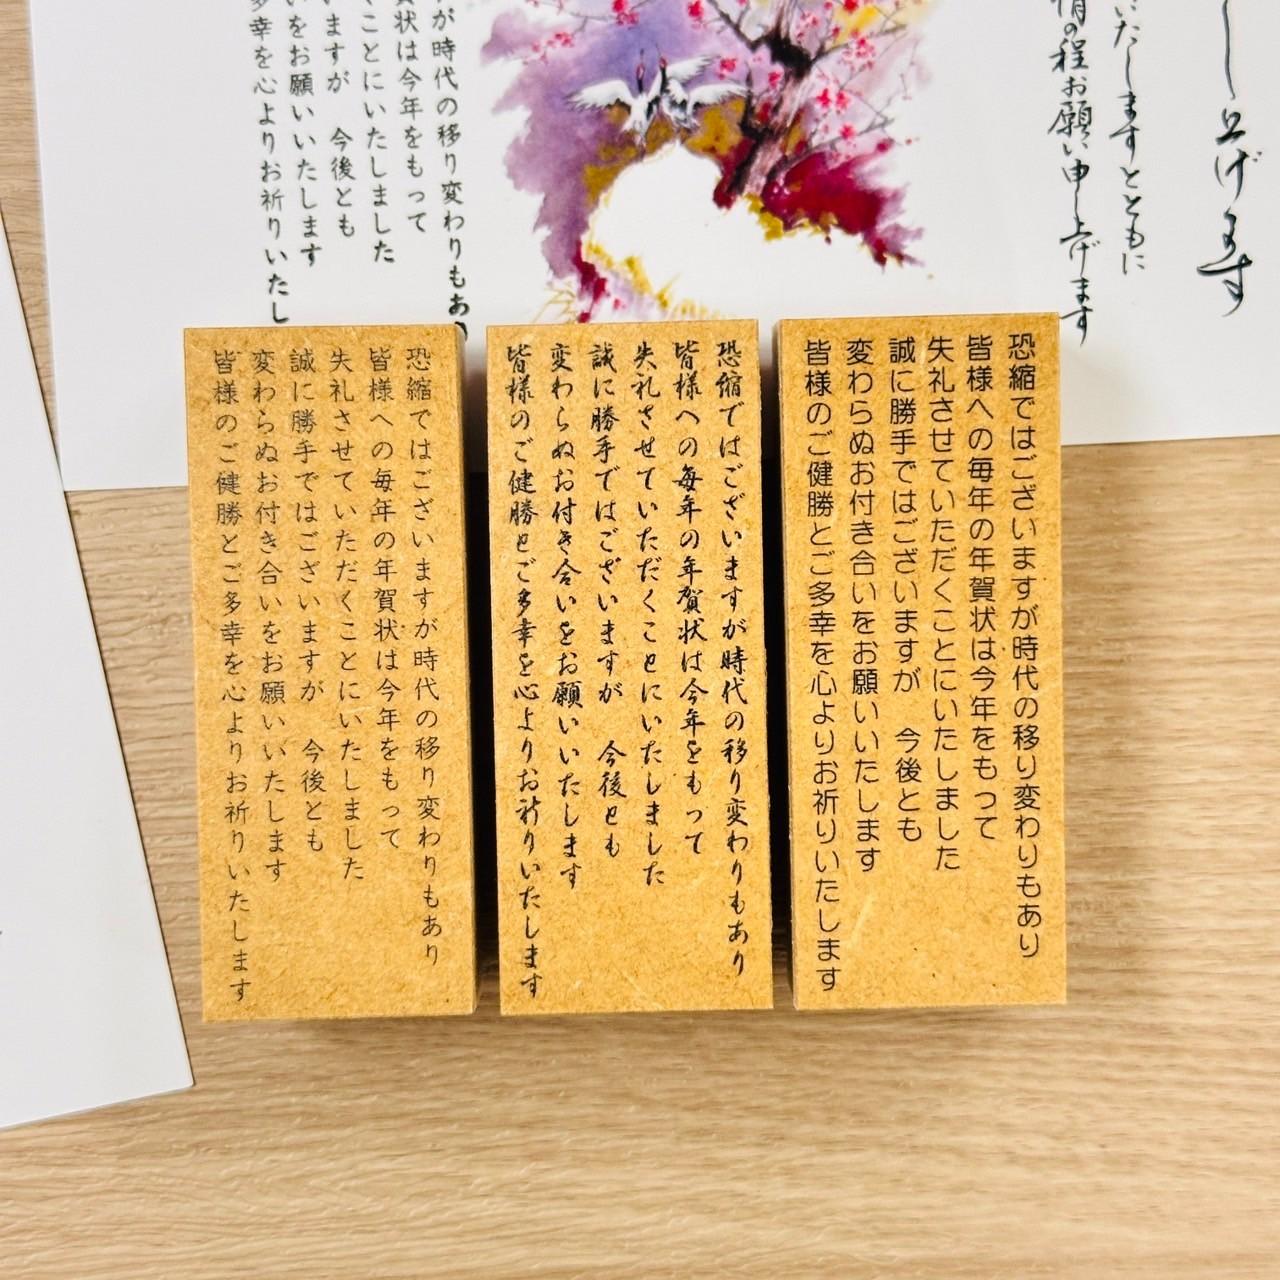 し上げます
いたしますとともに
情の程お願い申し上げます
が時代の移り変わりもあり
賀状は今年をもって
くことにいたしました
いますが　今後とも
いをお願いいたします
多幸を心よりお祈りいたし
恐縮ではございますが時代の移り変わりもあり
皆様への毎年の年賀状は今年をもって
失礼させていただくことにいたしました
誠に勝手ではございますが　今後とも
変わらぬお付き合いをお願いいたします
皆様のご健勝とご多幸を心よりお祈りいたします
恐縮ではございますが時代の移り変わりもあり
皆様への毎年の年賀状は今年をもって
失礼させていただくことにいたしました
誠に勝手ではございますが　今後とも
変わらぬお付き合いをお願いいたします
皆様のご健勝とご多幸を心よりお祈りいたします
恐縮ではございますが時代の移り変わりもあり
皆様への毎年の年賀状は今年をもって
失礼させていただくことにいたしました
誠に勝手ではございますが　今後とも
変わらぬお付き合いをお願いいたします
皆様のご健勝とご多幸を心よりお祈りいたします